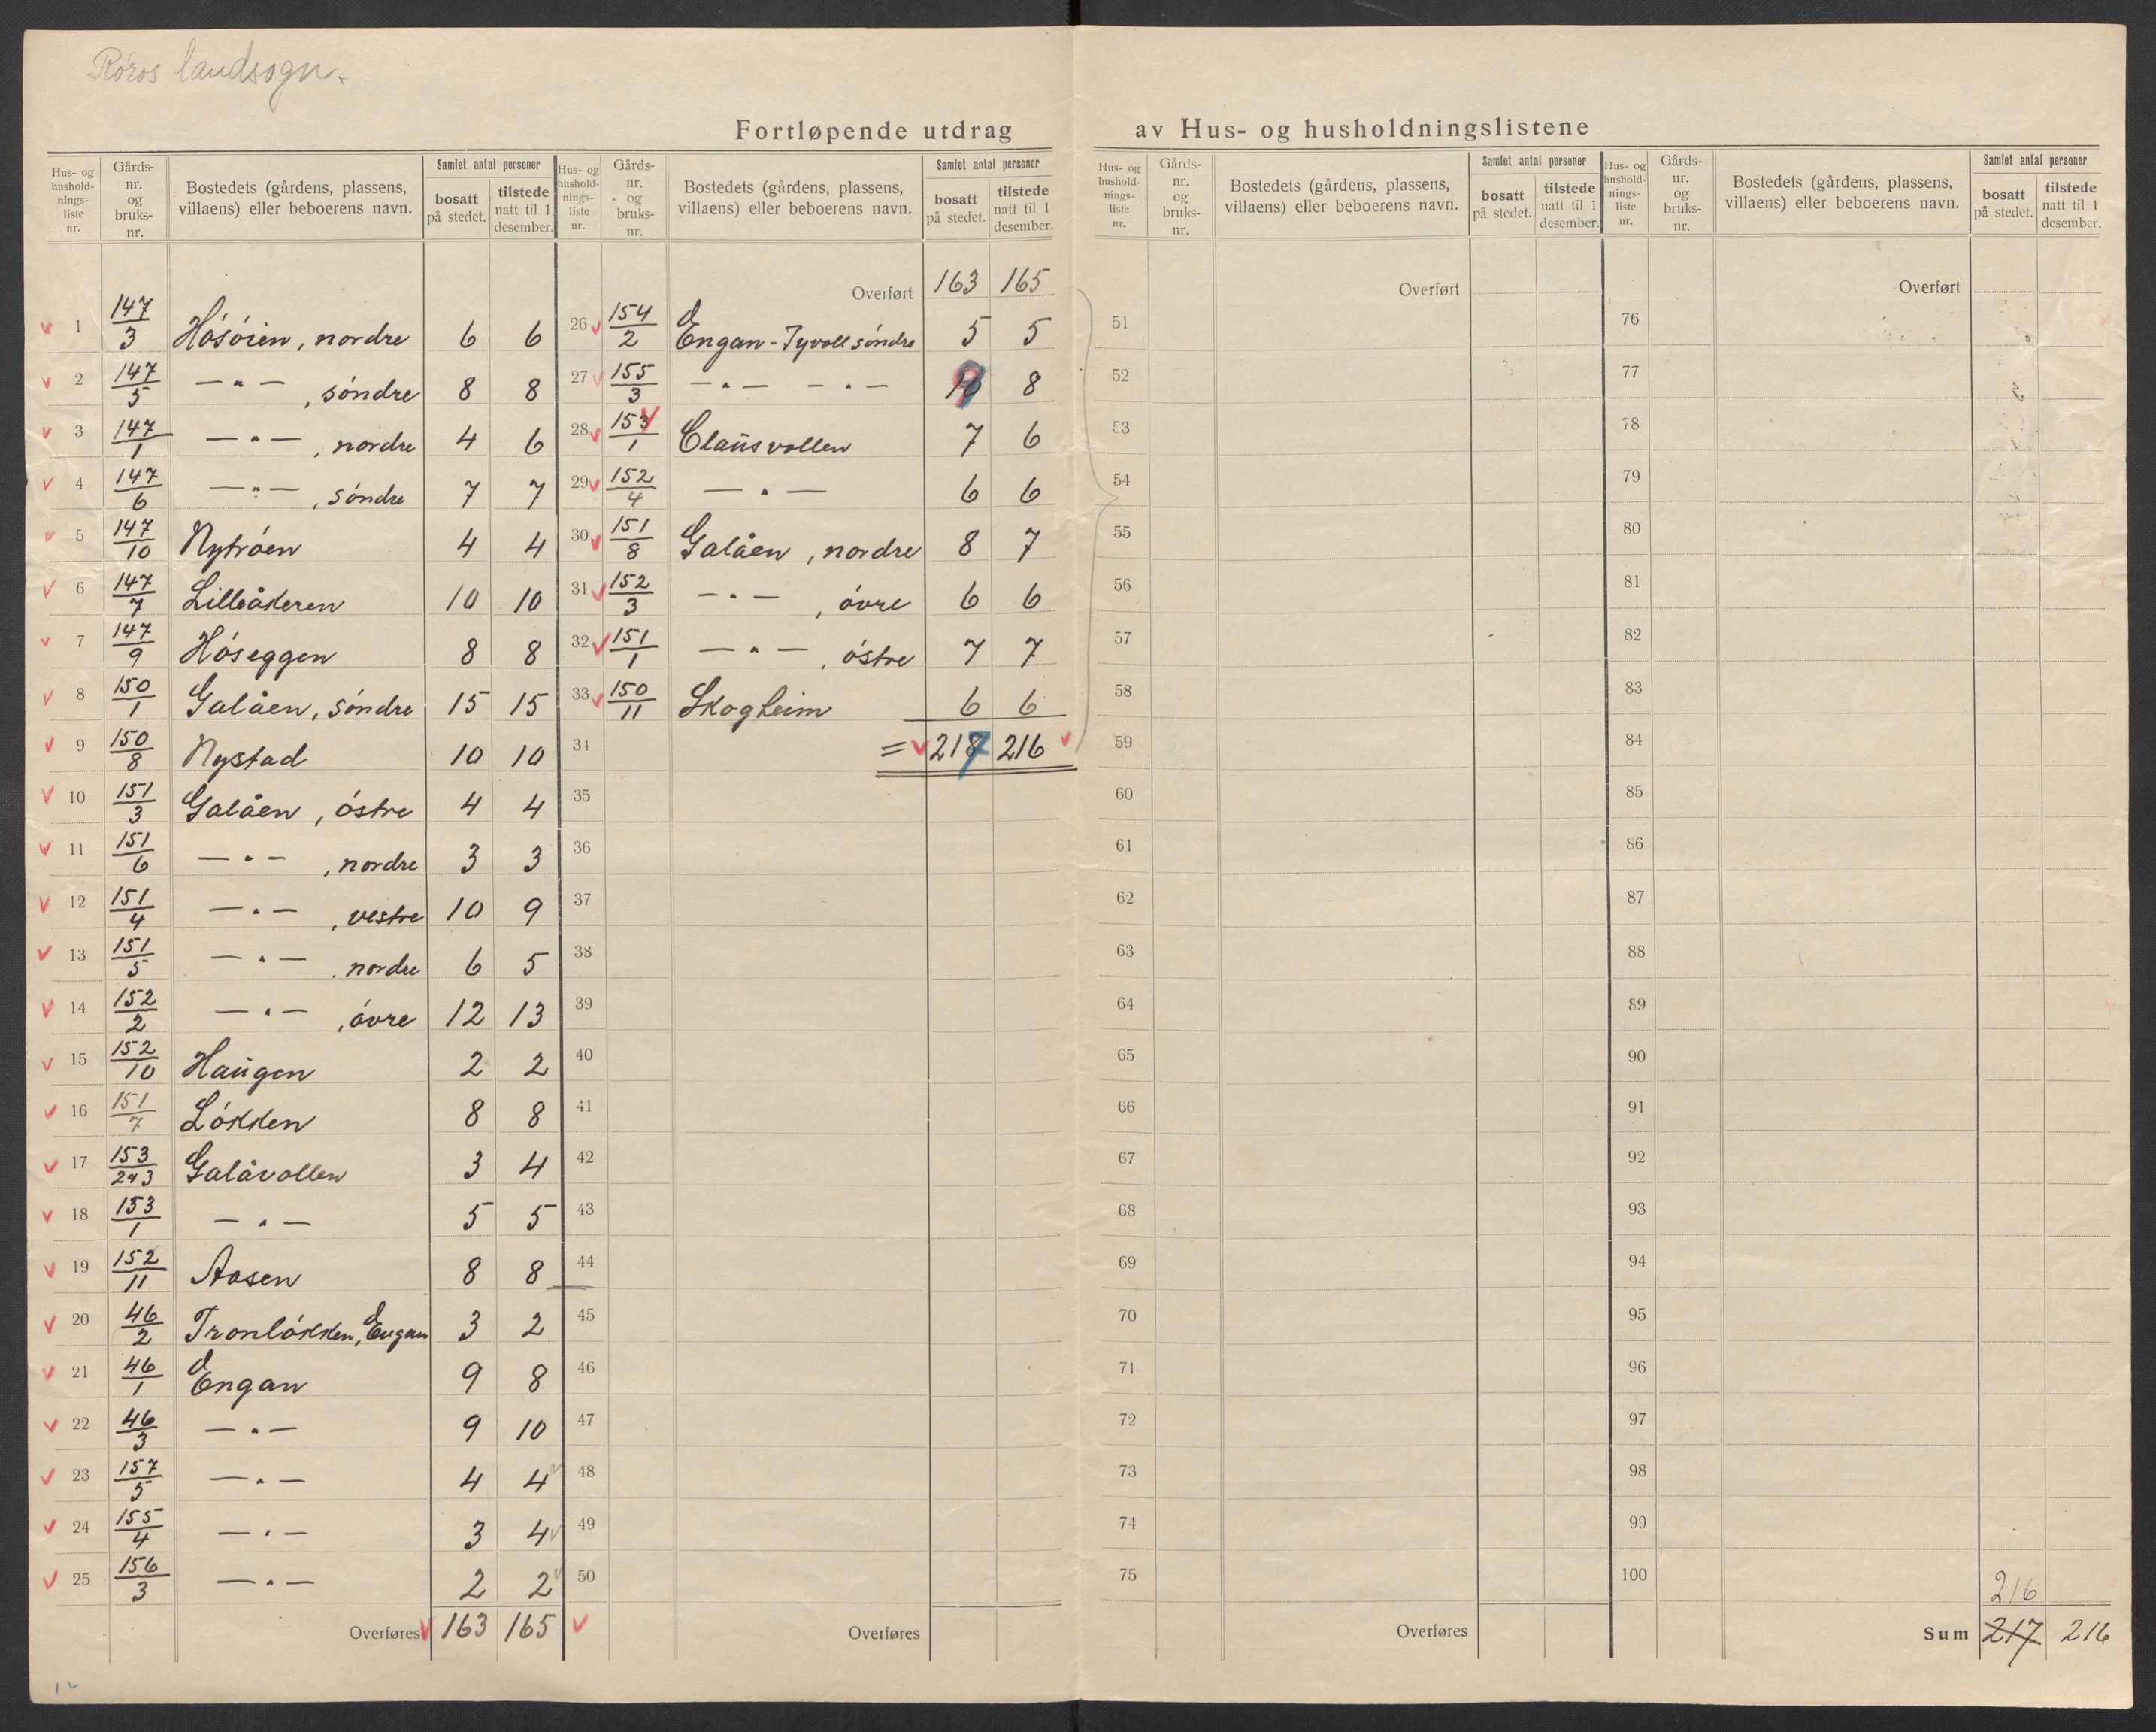 Røros landsogn.
Fortløpende utdrag av Hus- og husholdningslistene
Hus- og hushold-nings-liste nr. | Gårds-nr. og bruks-nr. | Bostedets (gårdens, plassens, villaens) eller beboerens navn. | Samlet antal personer | bosatt på stedet. | tilstede natt til 1 desember.
Hus- og hushold-nings-liste nr. | Gårds-nr. og bruks-nr. | Bostedets (gårdens, plassens, villaens) eller beboerens navn. | Samlet antal personer | bosatt på stedet. | tilstede natt til 1 desember.
Hus- og hushold-nings-liste nr. | Gårds-nr. og bruks-nr. | Bostedets (gårdens, plassens, villaens) eller beboerens navn. | Samlet antal personer | bosatt på stedet. | tilstede natt til 1 desember.
Hus- og hushold-nings-liste nr. | Gårds-nr. og bruks-nr. | Bostedets (gårdens, plassens, villaens) eller beboerens navn. | Samlet antal personer | bosatt på stedet. | tilstede natt til 1 desember.
1 147/3 Hósóien, nordre 6 6
2 147/5 —"— , sóndre 8 8
3 147/1 —"— , nordre 4 6
4 147/6 —"— , sóndre 7 7
5 147/10 Nytróen 4 4
6 147/7 Lilleåkeren 10 10
7 147/9 Hóseggen 8 8
8 150/1 Galåen, sóndre 15 15
9 150/8 Nystad 10 10
10 151/3 Galåen, óstre 4 4
11 151/6 —"— , nordre 3 3
12 151/4 —"— , vestre 10 9
13 151/5 —"— , nordre 6 5
14 152/2 —"— , óvre 12 13
15 152/10 Haugen 2 2
16 151/7 Lókken 8 8
17 153/2+3 Galåvollen 3 4
18 153/1 —"— 5 5
19 152/11 Aasen 8 8
20 46/2 Tronlókken, Engan 3 2
21 46/1 Engan 9 8
22 46/3 —"— 9 10
23 157/5 —"— 4 4
24 155/4 —"— 3 4
25 156/3 —"— 2 2
Overføres 163 165
Overført 163 165
26 154/2 Engan-Tyvoll sóndre 5 5
27 155/3 —"— —"— 9 8
28 153/1 Clausvollen 7 6
29 152/4 —"— 6 6
30 151/8 Galåen, nordre 8 7
31 152/3 —"— , óvre 6 6
32 151/1 —"— , óstre 7 7
33 150/11 Skogheim 6 6
34 = 217 216
35
36
37
38
39
40
41
42
43
44
45
46
47
48
49
50
Overføres
Overført
51
52
53
54
55
56
57
58
59
60
61
62
63
64
65
66
67
68
69
70
71
72
73
74
75
Overføres
Overført
76
77
78
79
80
81
82
83
84
85
86
87
88
89
90
91
92
93
94
95
96
97
98
99
100
216
Sum 217 216